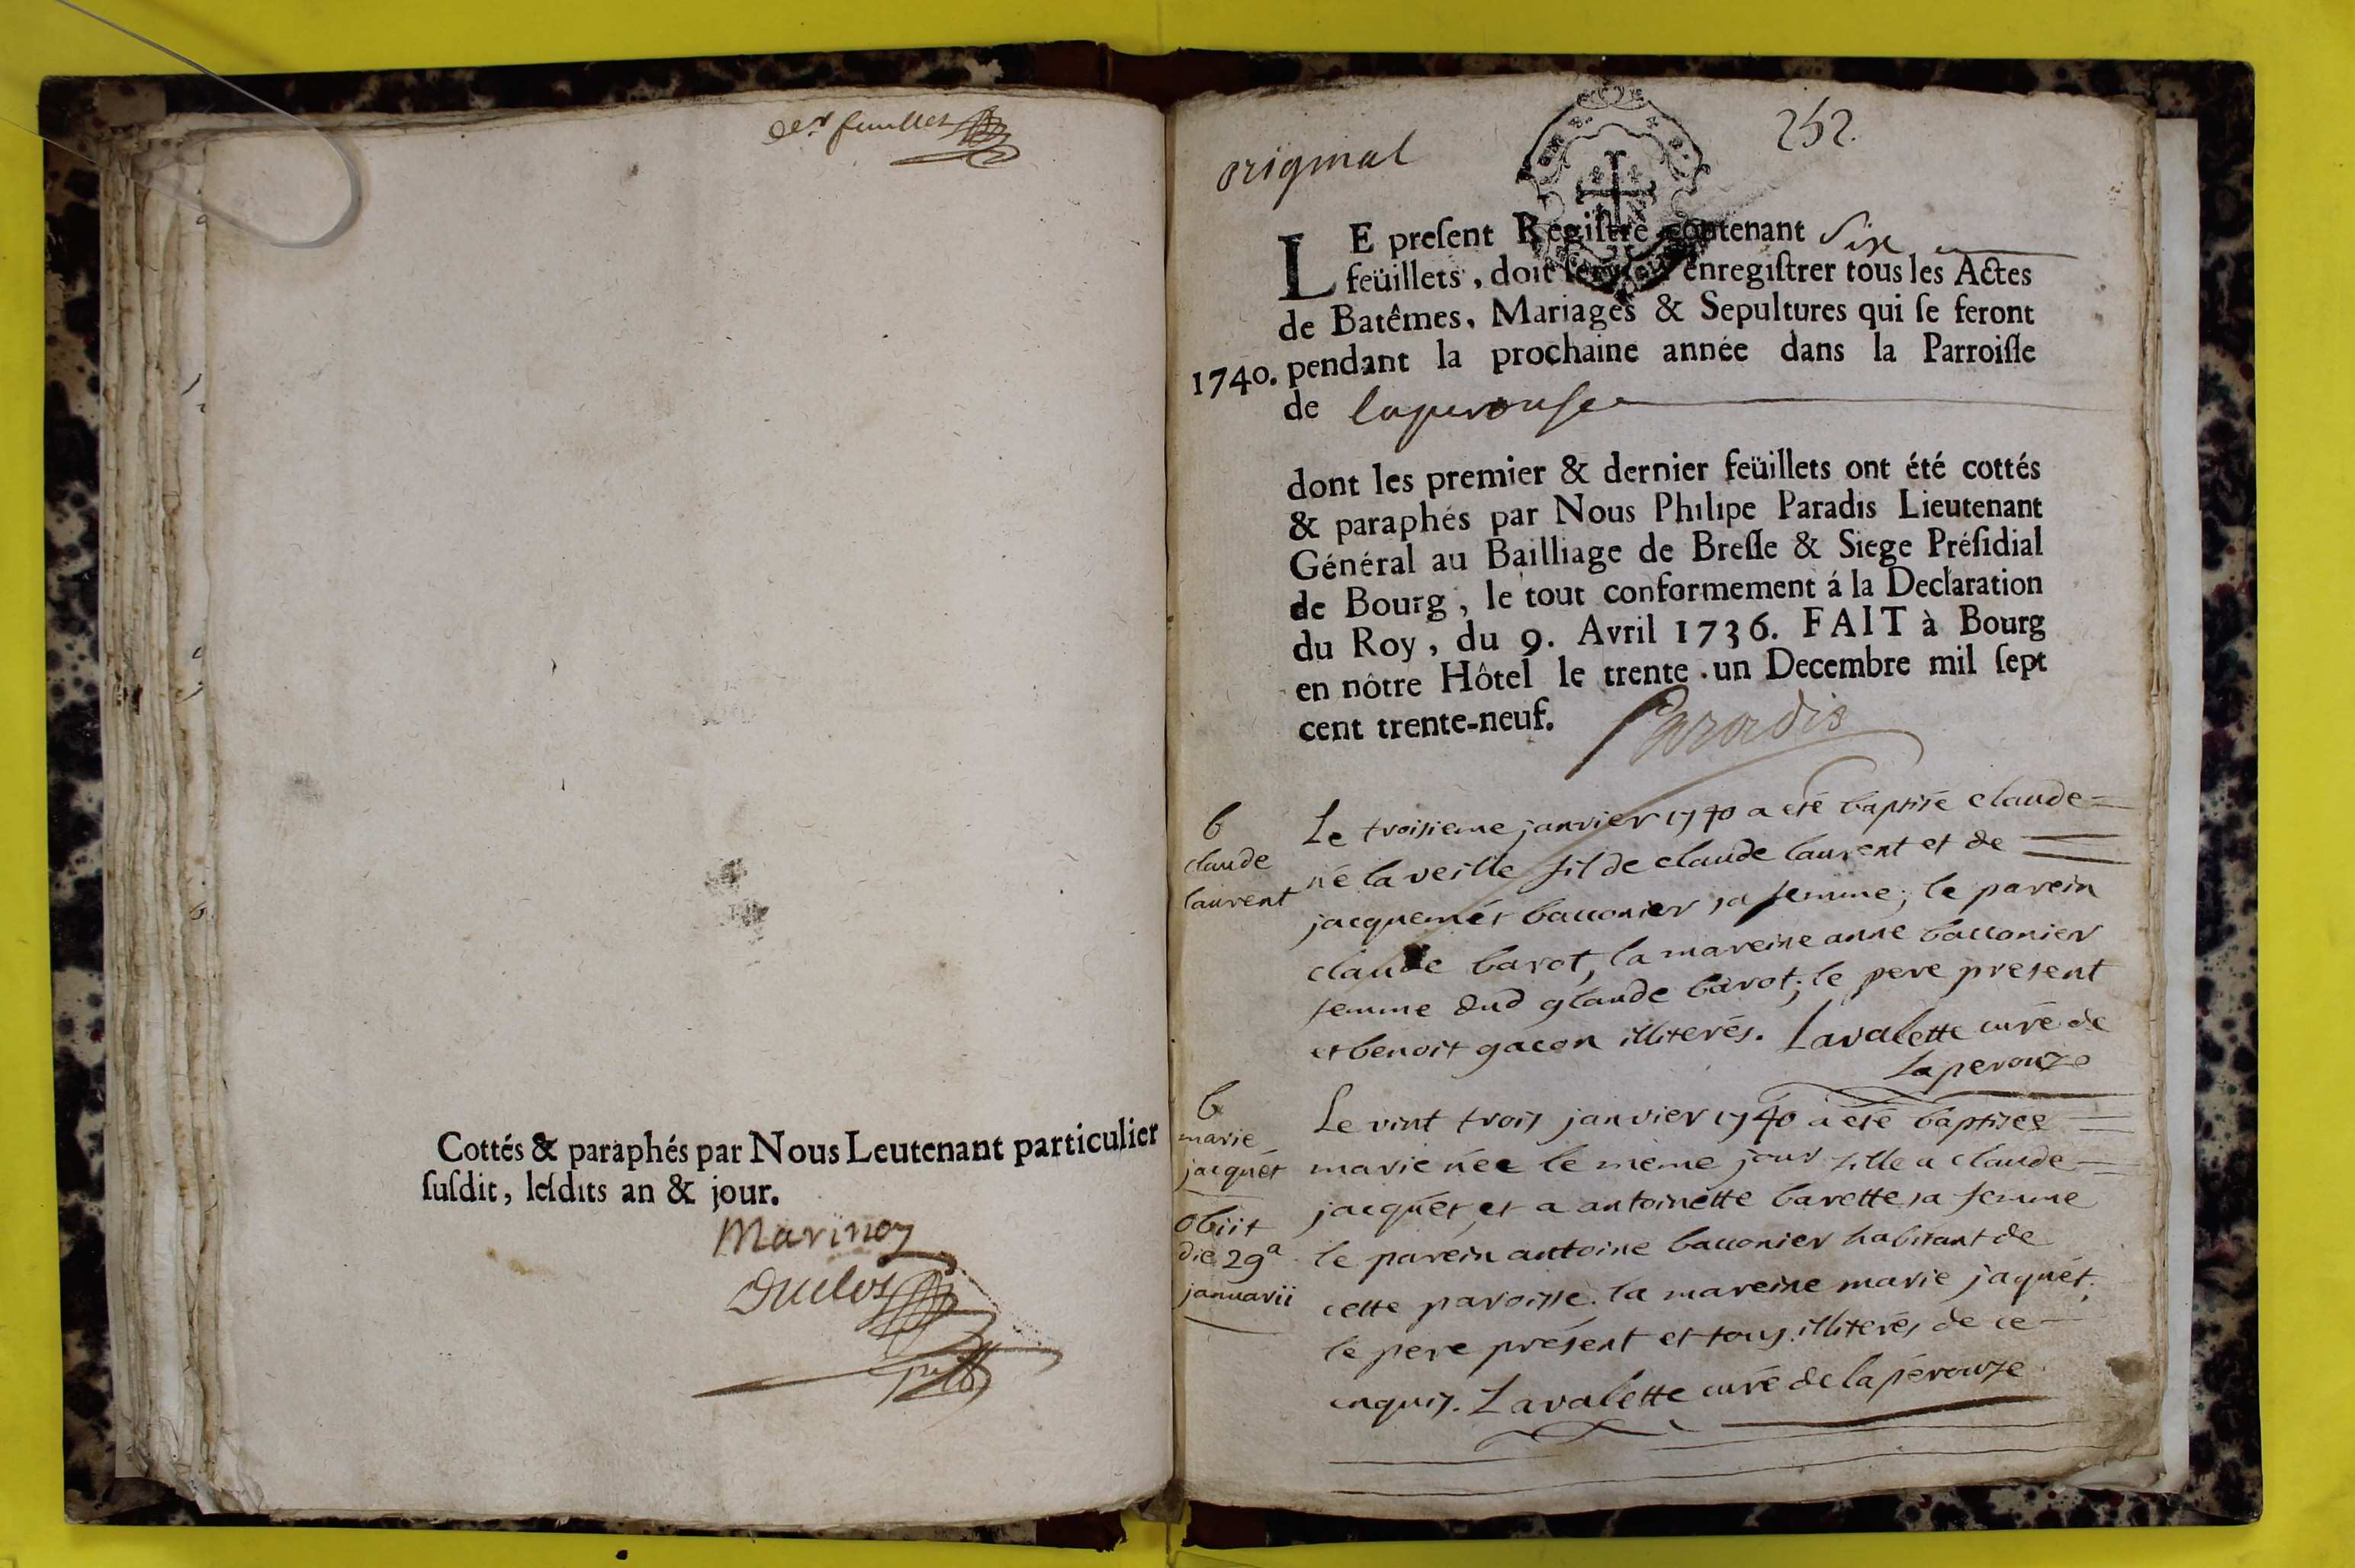 der feuillet
Cottés & paraphés par Nous Leutenant particulier
ſuſdit, leſdits an & jour.
Marinon
Duclos
original
252.
LE preſent Regiſtre contenant Six
feüillets, doit enregiſtrer tous les Actes
de Batêmes, Mariages & Sepultures qui ſe feront
1740. pendant la prochaine année dans la Parroiſſe
de laperouse
dont les premier & dernier feüillets ont été cottés
& paraphés par Nous Philipe Paradis Lieutenant
Général au Bailliage de Breſſe & Siege Préſidial
de Bourg, le tout conformement á la Declaration
du Roy, du 9. Avril 1736. FAIT à Bourg
en nôtre Hôtel le trente-un Decembre mil ſept
cent trente-neuf. Paradis
b
claude
laurent
Le troisieme janvier 1740 a eté baptisé claude
né la veille fil de claude laurent et de
jacquemet bacconier sa femme; le parein
claude barot, la mareine anne bacconier
femme dud glaude barot; le pere present
et benoit gacon illiterés. Lavalette curé de
Laperouze
b
marie
jacquét
obiit
die 29a
januarii
Le vint trois janvier 1740 a eté baptisee
marie née le même jour fille a claude
jacquét et a antoinette barette sa femme
le parein antoine bacconier habitant de
cette paroisse. la mareine marie jaquét.
le pere présent et tous illiterés de ce
enquis. Lavalette curé de lapérouze